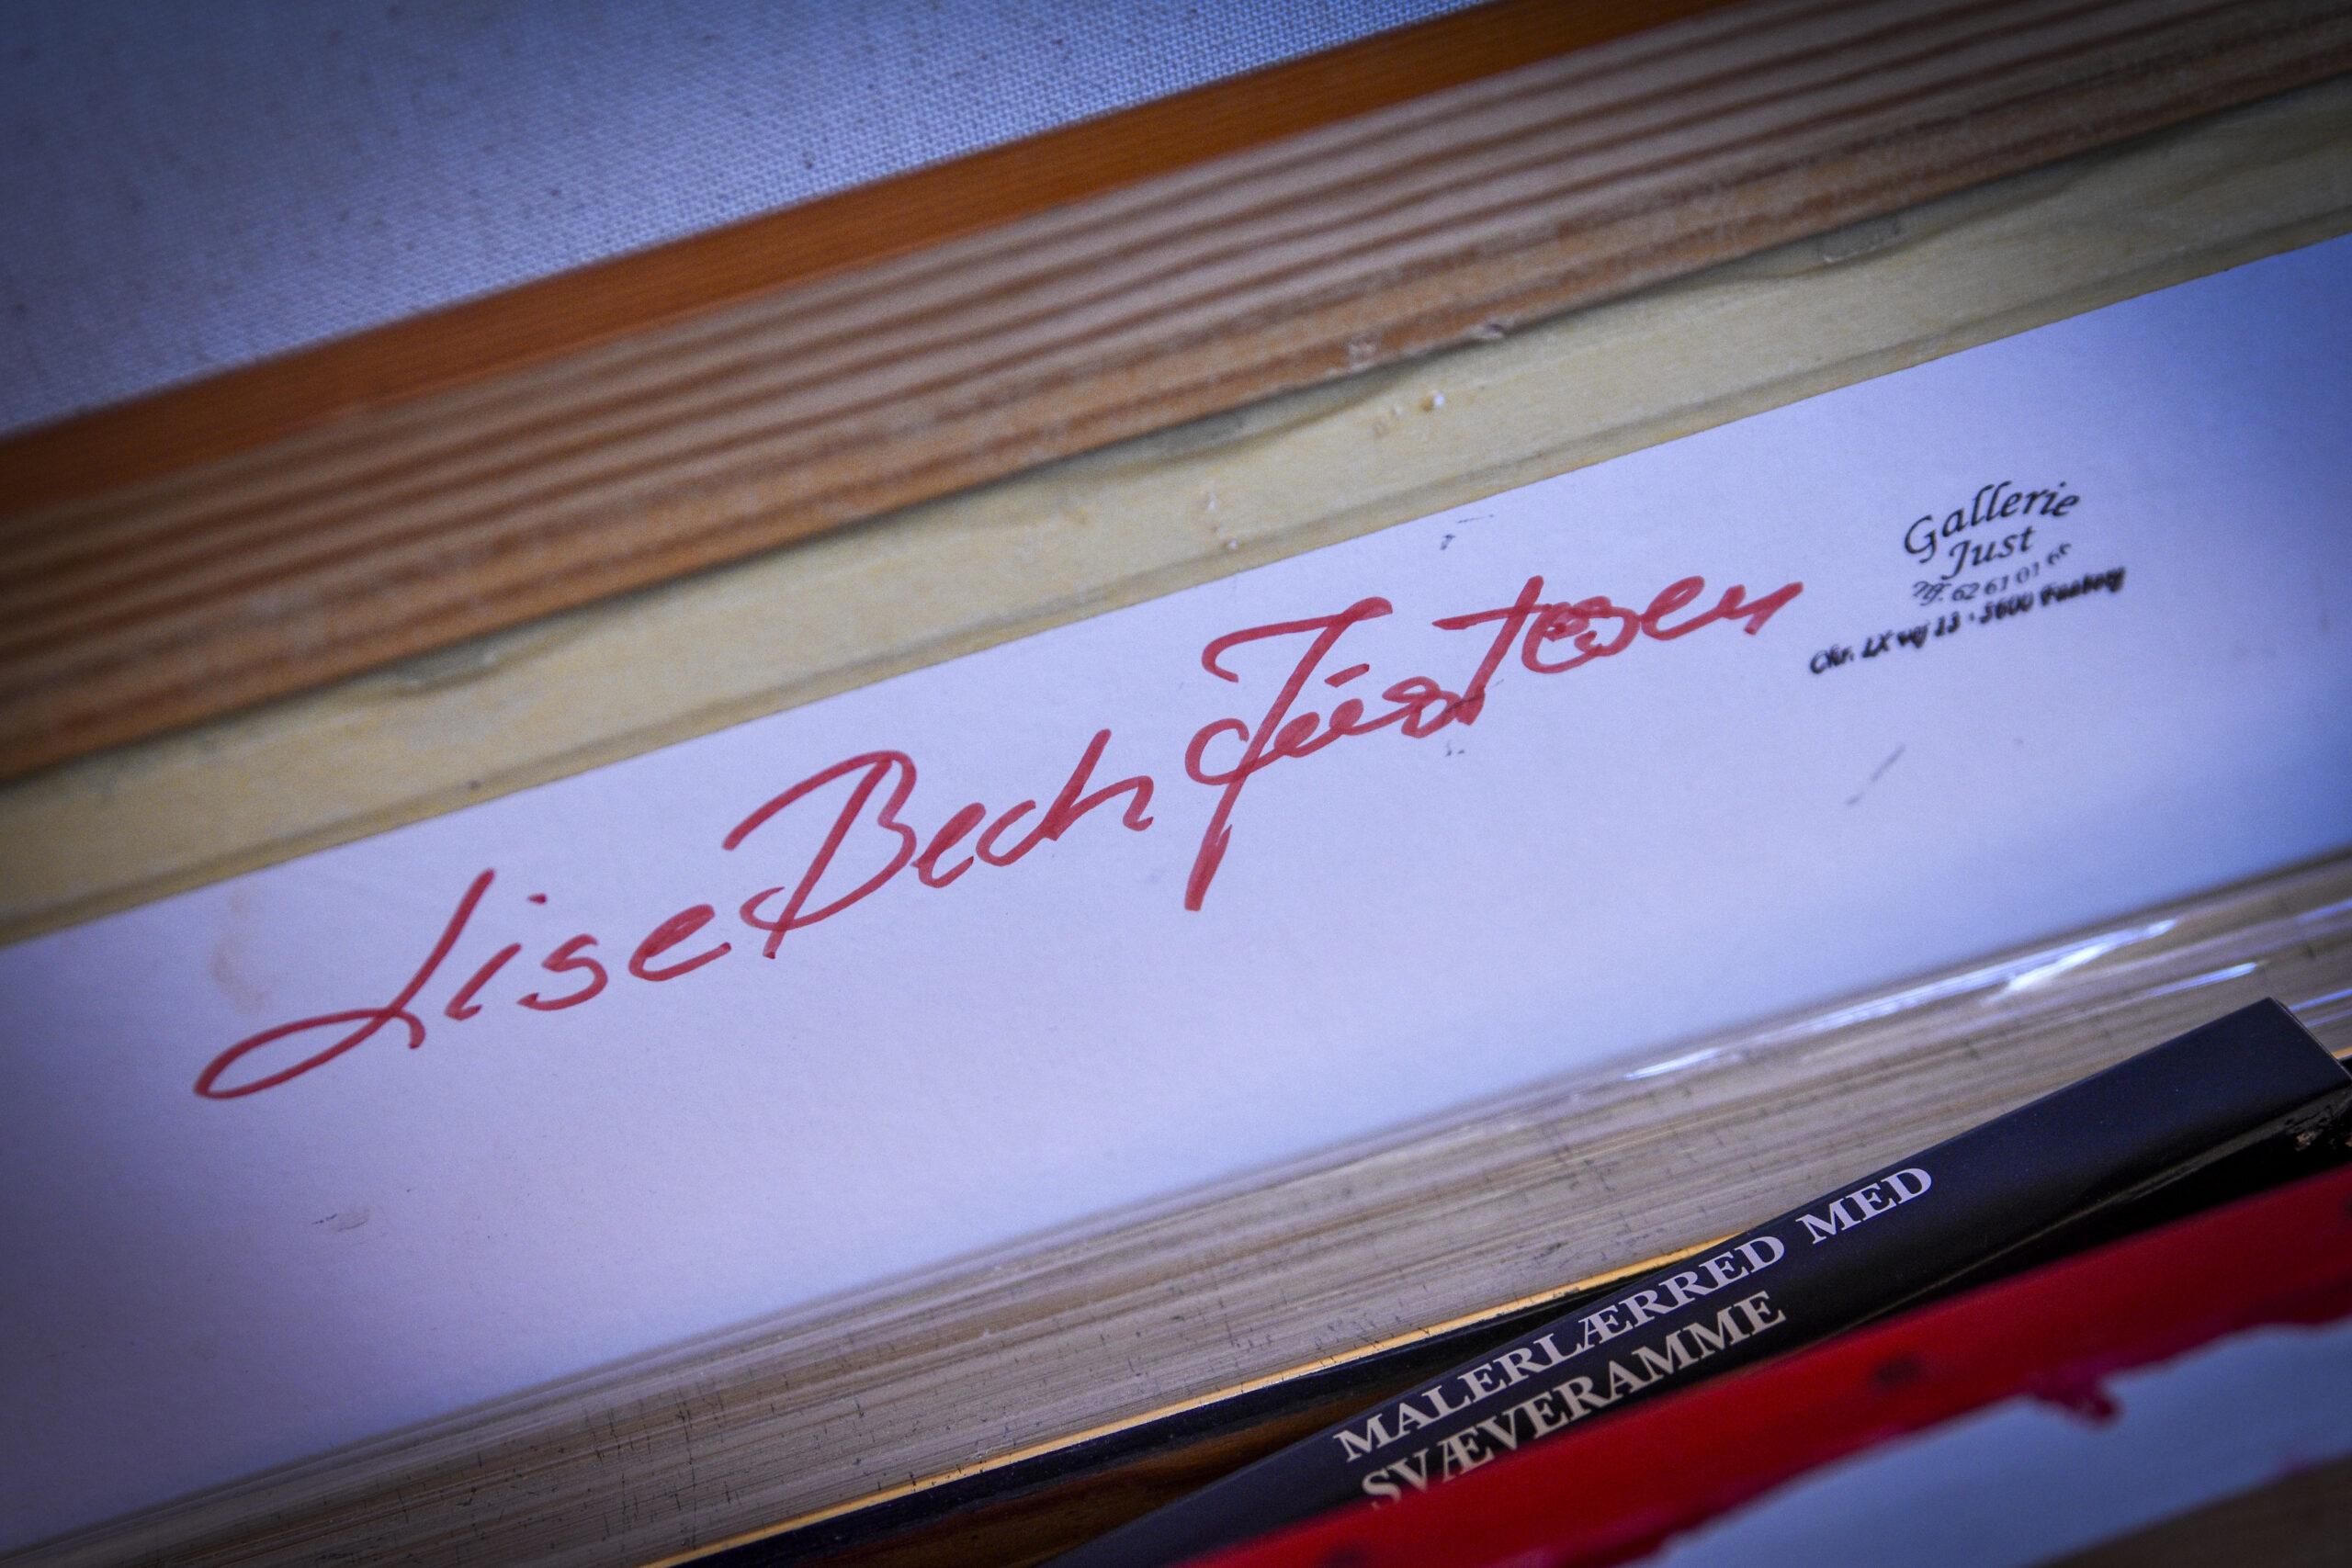 Lise Bech
Gallerie
Just
Tlf. 62 61 01
Chr. IX vej 13 · 5600 Faaborg
MALERLÆRRED MED
SVÆVERAMME